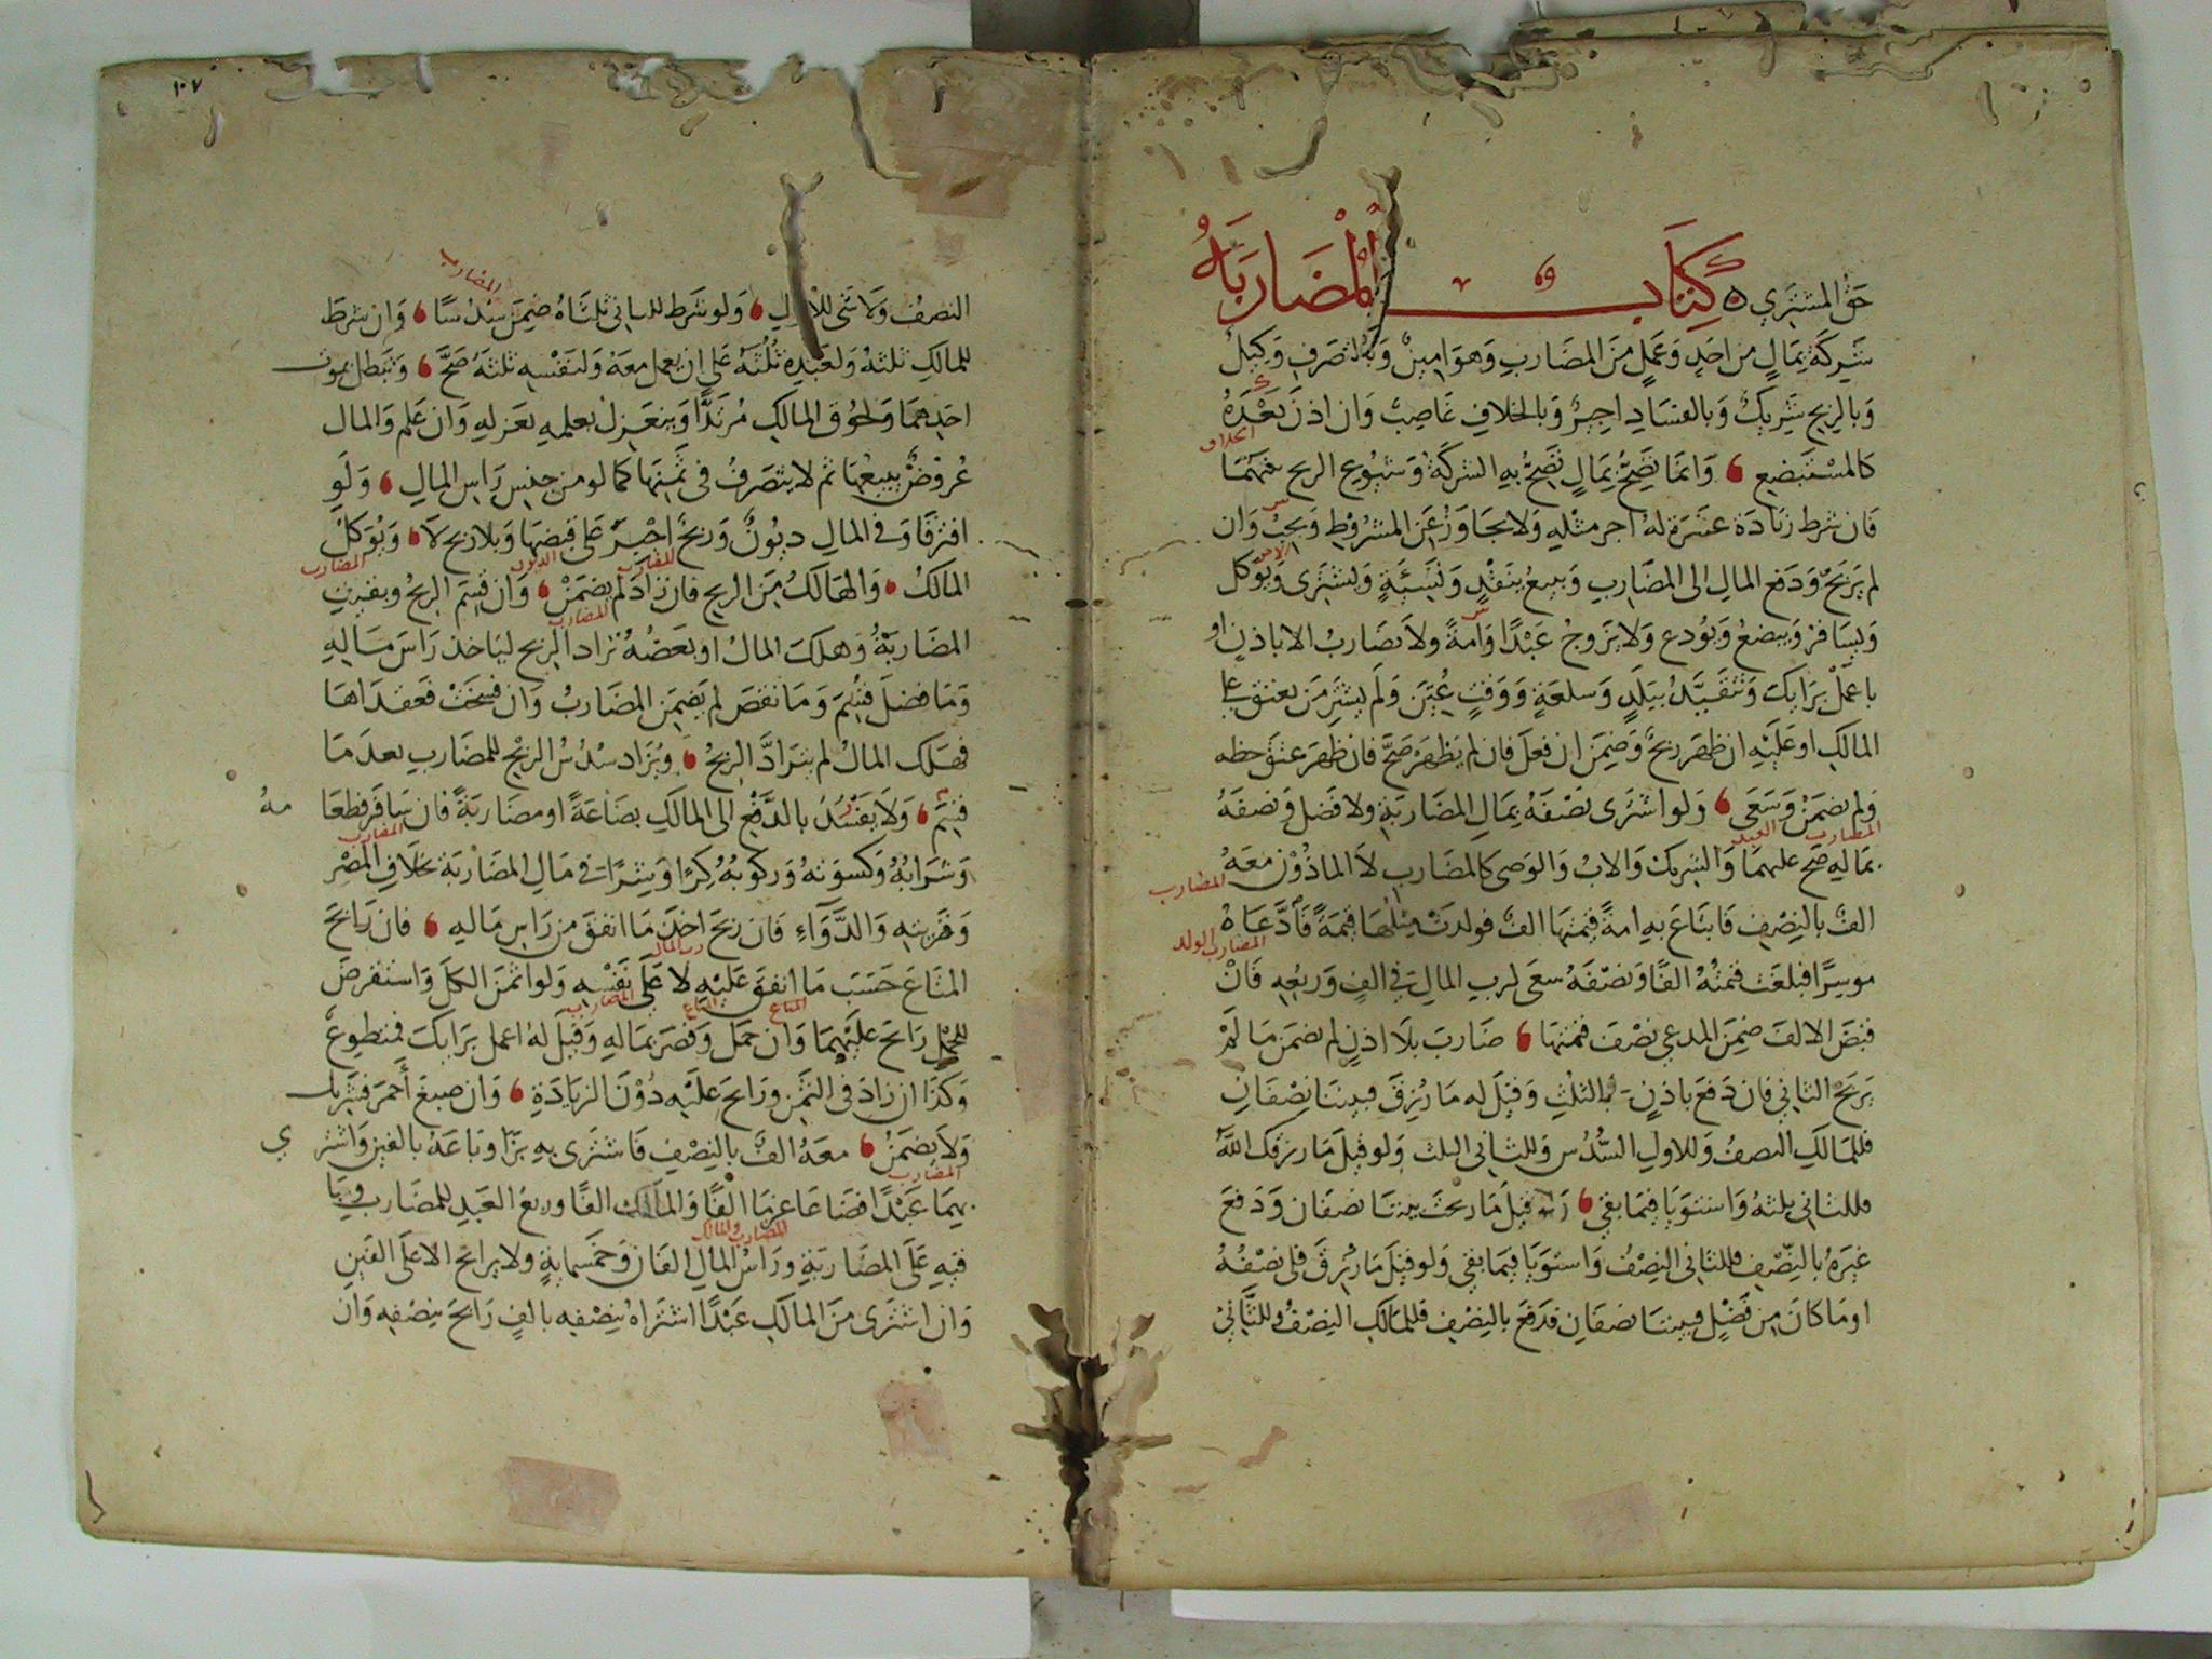 حق المشتري ه كتاب المضاربة
شركة بمال من احد وعمل من المضارب وهو امين وبالتصرف وكيل
وبالربح شريك وبالفساد اجير وبالخلاف غاصب وان اذن بعده
الخلاف
كالمستبضع وانما تصح بمال تصح به الشركة وشيوع الربح بينهما
فان شرط زيادة عشرة له اجر مثله ولا يجاوز عن المشروط ويجب وان
الاجر
لم يربح ودفع المال الى المضارب ويبيع بنقد ونسيئة ويشترى ويوكل
ويسافر ويبضع ويودع ولا يزوج عبدا وامة ولا يضارب الا باذن او
باعمل برايك وتتقيد ببلد وسلعة ووقت عين ولم يشتر من يعتق على
المالك او عليه ان ظهر ربح وضمن ان فعل فان لم يظهر صح فان ظهر عتق حظه
ولم يضمن وسعى ولو اشترى نصفه بمال المضاربة ولا فضل ونصفه
المضارب العبد
بماله صح عليهما والشريك والاب والوصى كالمضارب لا الماذون معه
المضارب
الف بالنصف فابتاع به امة قيمتها الف فولدت مثلها قيمة فادعاه
المضارب الولد
موسرا فبلغت قيمته الفا ونصفه سعى لرب المال في الف وربعه فان
قبض الالف ضمن المدعي نصف قيمتها ضارب بلا اذن لم يضمن ما لم
يربح الثاني فان دفع باذن بالثلث وقيل له ما رزق فبيننا نصفان
فللمالك النصف وللاول السدس وللثاني الثلث ولو قيل ما رزقك الله
فللثاني ثلثه واستويا فيما بقي قيل ما ربحت بيننا نصفان ودفع
غيره بالنصف فللثاني النصف واستويا فيما بقي ولو قيل ما رزق فلي نصفه
او ما كان من فضل فبيننا نصفان فدفع بالنصف فللمالك النصف وللثاني
١٠٧
المضارب
النصف ولا شى للاول ولو شرط للثاني ثلثاه ضمن سدسا وان شرط
للمالك ثلثه ولعبده ثلثه على ان يعمل معه ولنفسه ثلثه صح وتبطل بموت
احدهما ولحوق المالك مرتدا وينعزل بعلمه بعزله وان علم والمال
عروض يبيعها ثم لا يتصرف في ثمنها كما لو من جنس راس المال ولو
افترقا وفي المال ديون وربح اجبر على قبضها وبلا ربح لا ويوكل
المضارب الديون المضارب
المالك والهالك من الربح فان زاد لم يضمن وان قسم الربح وبقيت
المضارب
المضاربة وهلك المال او بعضه ترادا الربح لياخذ راس ماله
وما فضل قسم وما نقص لم يضمن المضارب وان فسخت فعقداها
فهلك المال لم يترادا الربح ويزاد سدس الربح للمضارب بعد ما
قسم ولا يفسد بالدفع الى المالك بضاعة او مضاربة فان سافر فطعا
مه
المضارب
وشرابه وكسوته وركوبه كرا وشرا في مال المضاربة بخلاف المصر
وقريته والدواء فان ربح اخذ ما انفق من راس ماله فان رابح
رب المال
المتاع حسب ما انفق عليه لا على نفسه ولو اثمن الكل واستقرض
المتاع المتاع المضارب
للحمل رابح عليهما وان حمل وقصر بماله وقيل له اعمل برايك فمتطوع
وكذا ان زاد في الثمن ورابح عليه دون الزيادة وان صبغ احمر فشريك
ولا يضمن معه الف بالنصف فاشترى به بزا وباعه بالفين واشتر
ي
المضارب
بهما عبدا فضاعا غرما الفا والمالك الفا وربع العبد للمضارب وبا
المضارب والمالك
قيه على المضاربة وراس المال الفان وخمسماية ولا يرابح الا على الفين
وان اشترى من المالك عبدا اشتراه بنصفه بالف رابح بنصفه وان